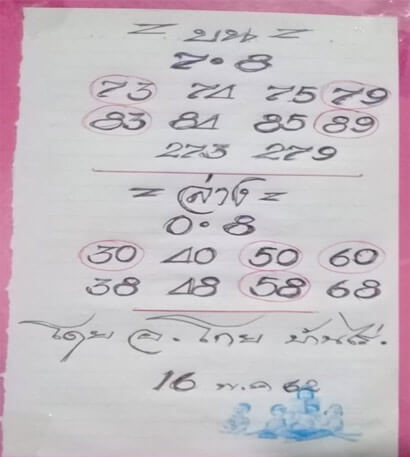 = บน =
7·8
73 74 75 79
83 84 85 89
273 279
= ล่าง =
0·8
30 40 50 60
38 48 58 68
โดย อ. โทย บ้านไร่.
16 พ.ค 62